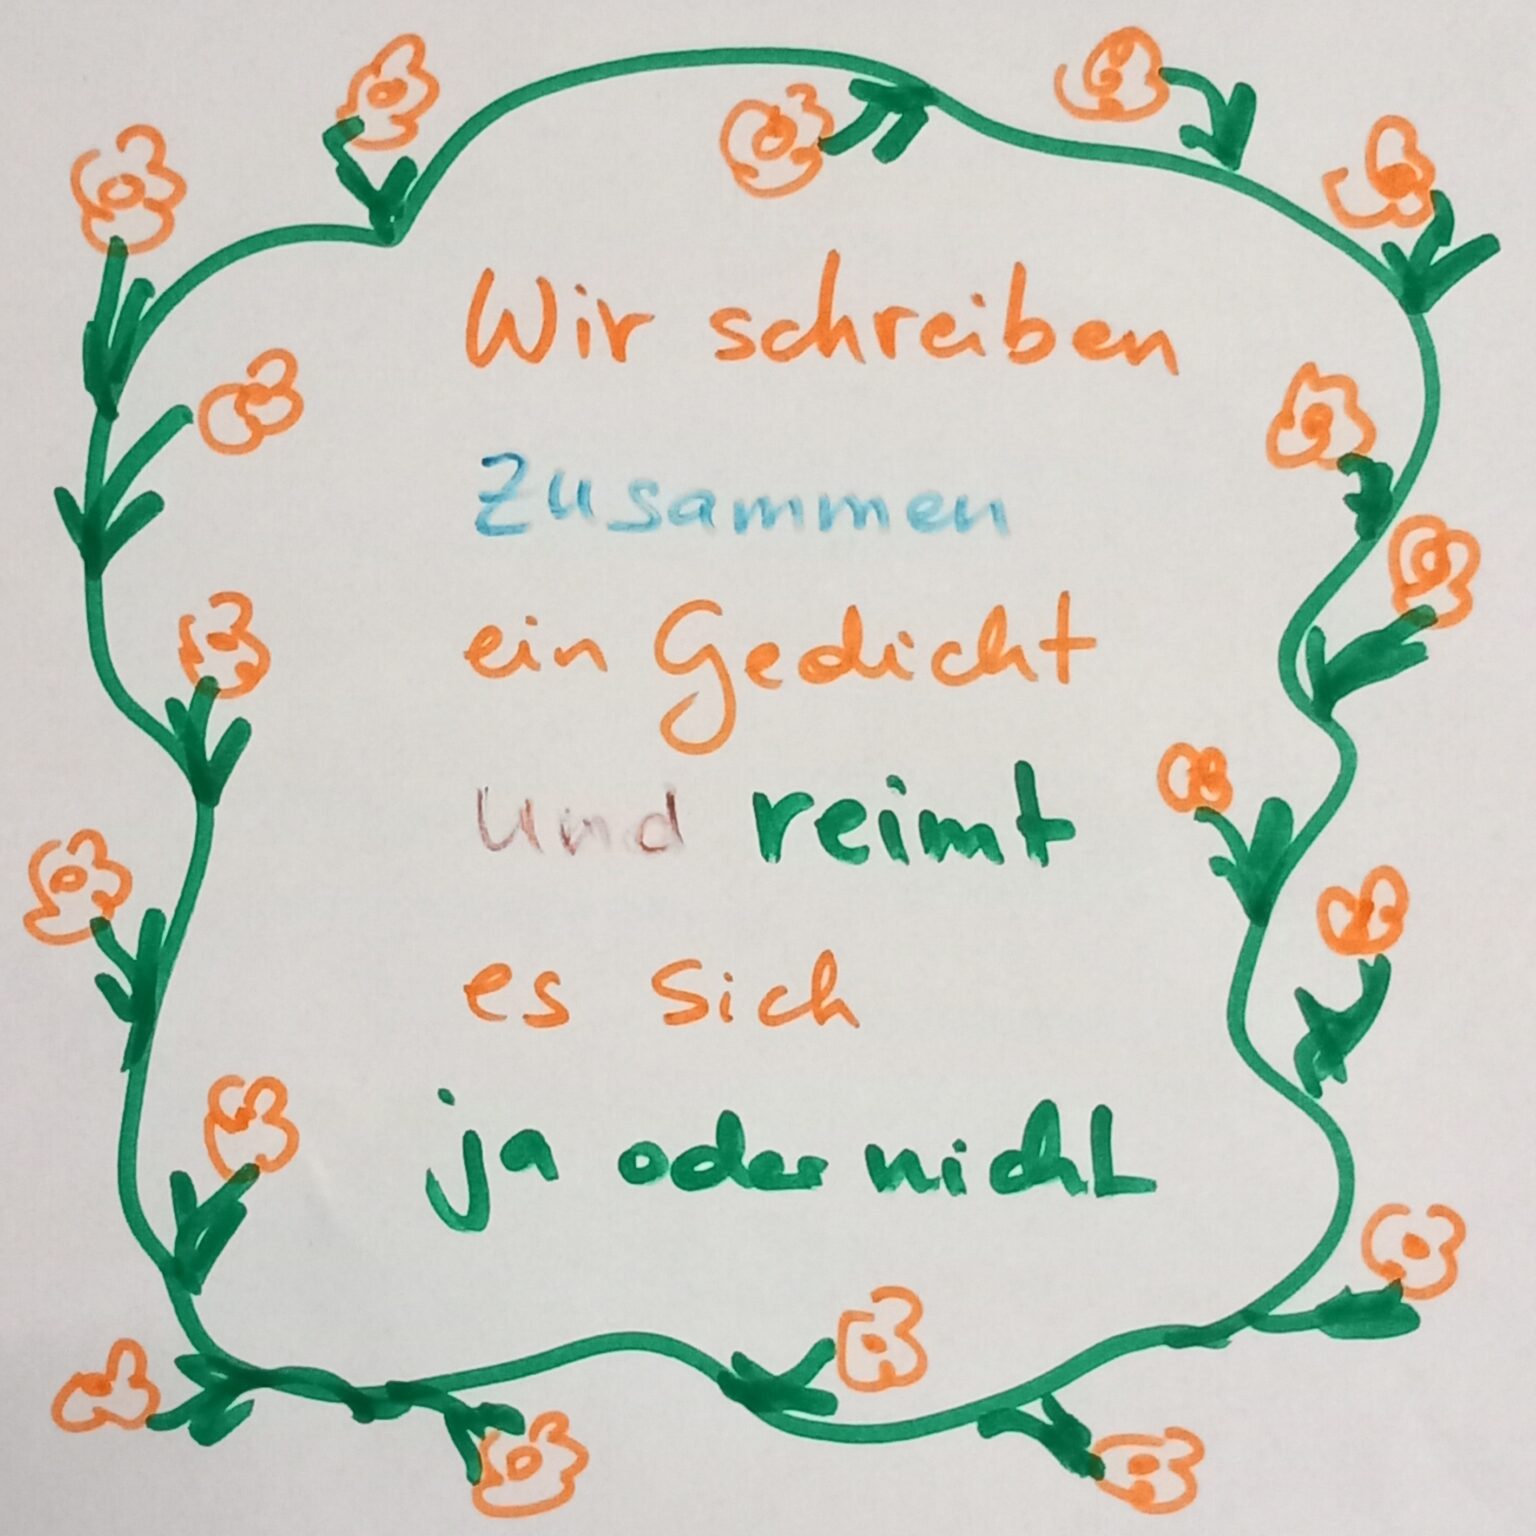 Wir schreiben
Zusammen
ein Gedicht
Und reimt
es sich
ja oder nicht